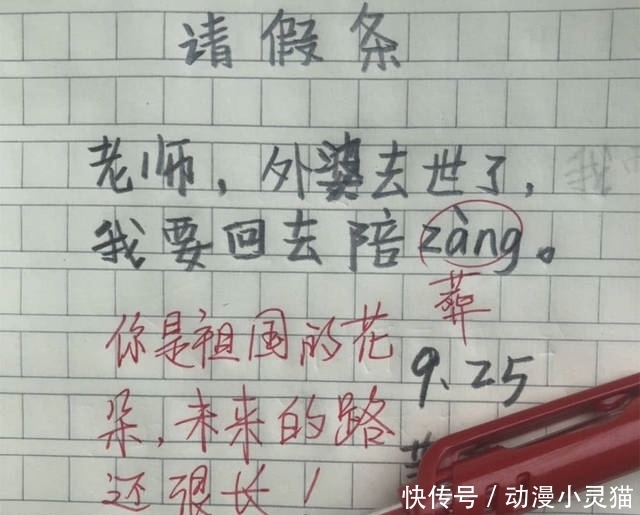 请假条
老师，外婆去世了，
我要回去陪zàng。
葬
9.25
你是祖国的花
朵，未来的路
还很长！
快传号/动漫小灵猫